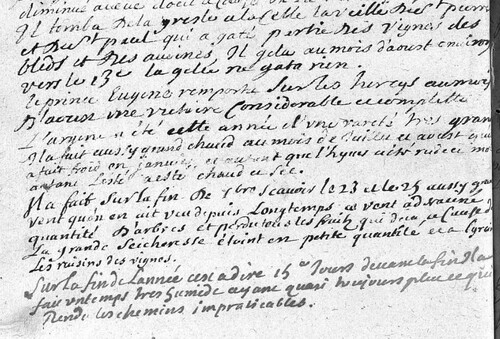 Il tomba De la gresle a la Celle la veille de st pierre
et De st paul qui a gaté partie Des vignes Des
bleds et Des avoines. Il gela au mois D'aoust environ
vers le 13e la gelée ne gata rien.
le prince Eugene remporta sur les turcqs au mois
D'aoust une victoire Considerable et complette
L'argent a été cette année D'une rareté tres grande
Il a fait aussy grand chaud au mois de Juillet et aoust qu'il
a fait froid en janvier, et autant que l'hyver a été rude
autant l'esté a esté chaud et sec.
Il a fait sur la fin De 7bre scavoir le 23 et le 25 aussy grand
vent qu'on en ait veu depuis Longtemps ce vent a desraciné
quantité D'arbres et perdu tous les fruits qui a Cause de
La grande seicheresse etoient en petite quantité et a
Les raisins des vignes.
Sur la fin de L'année c'est a dire 15 Jours devant la fin Il a
fait un temps tres humide ayant quasi toujours plu ce qui
Rende les chemins impraticables.